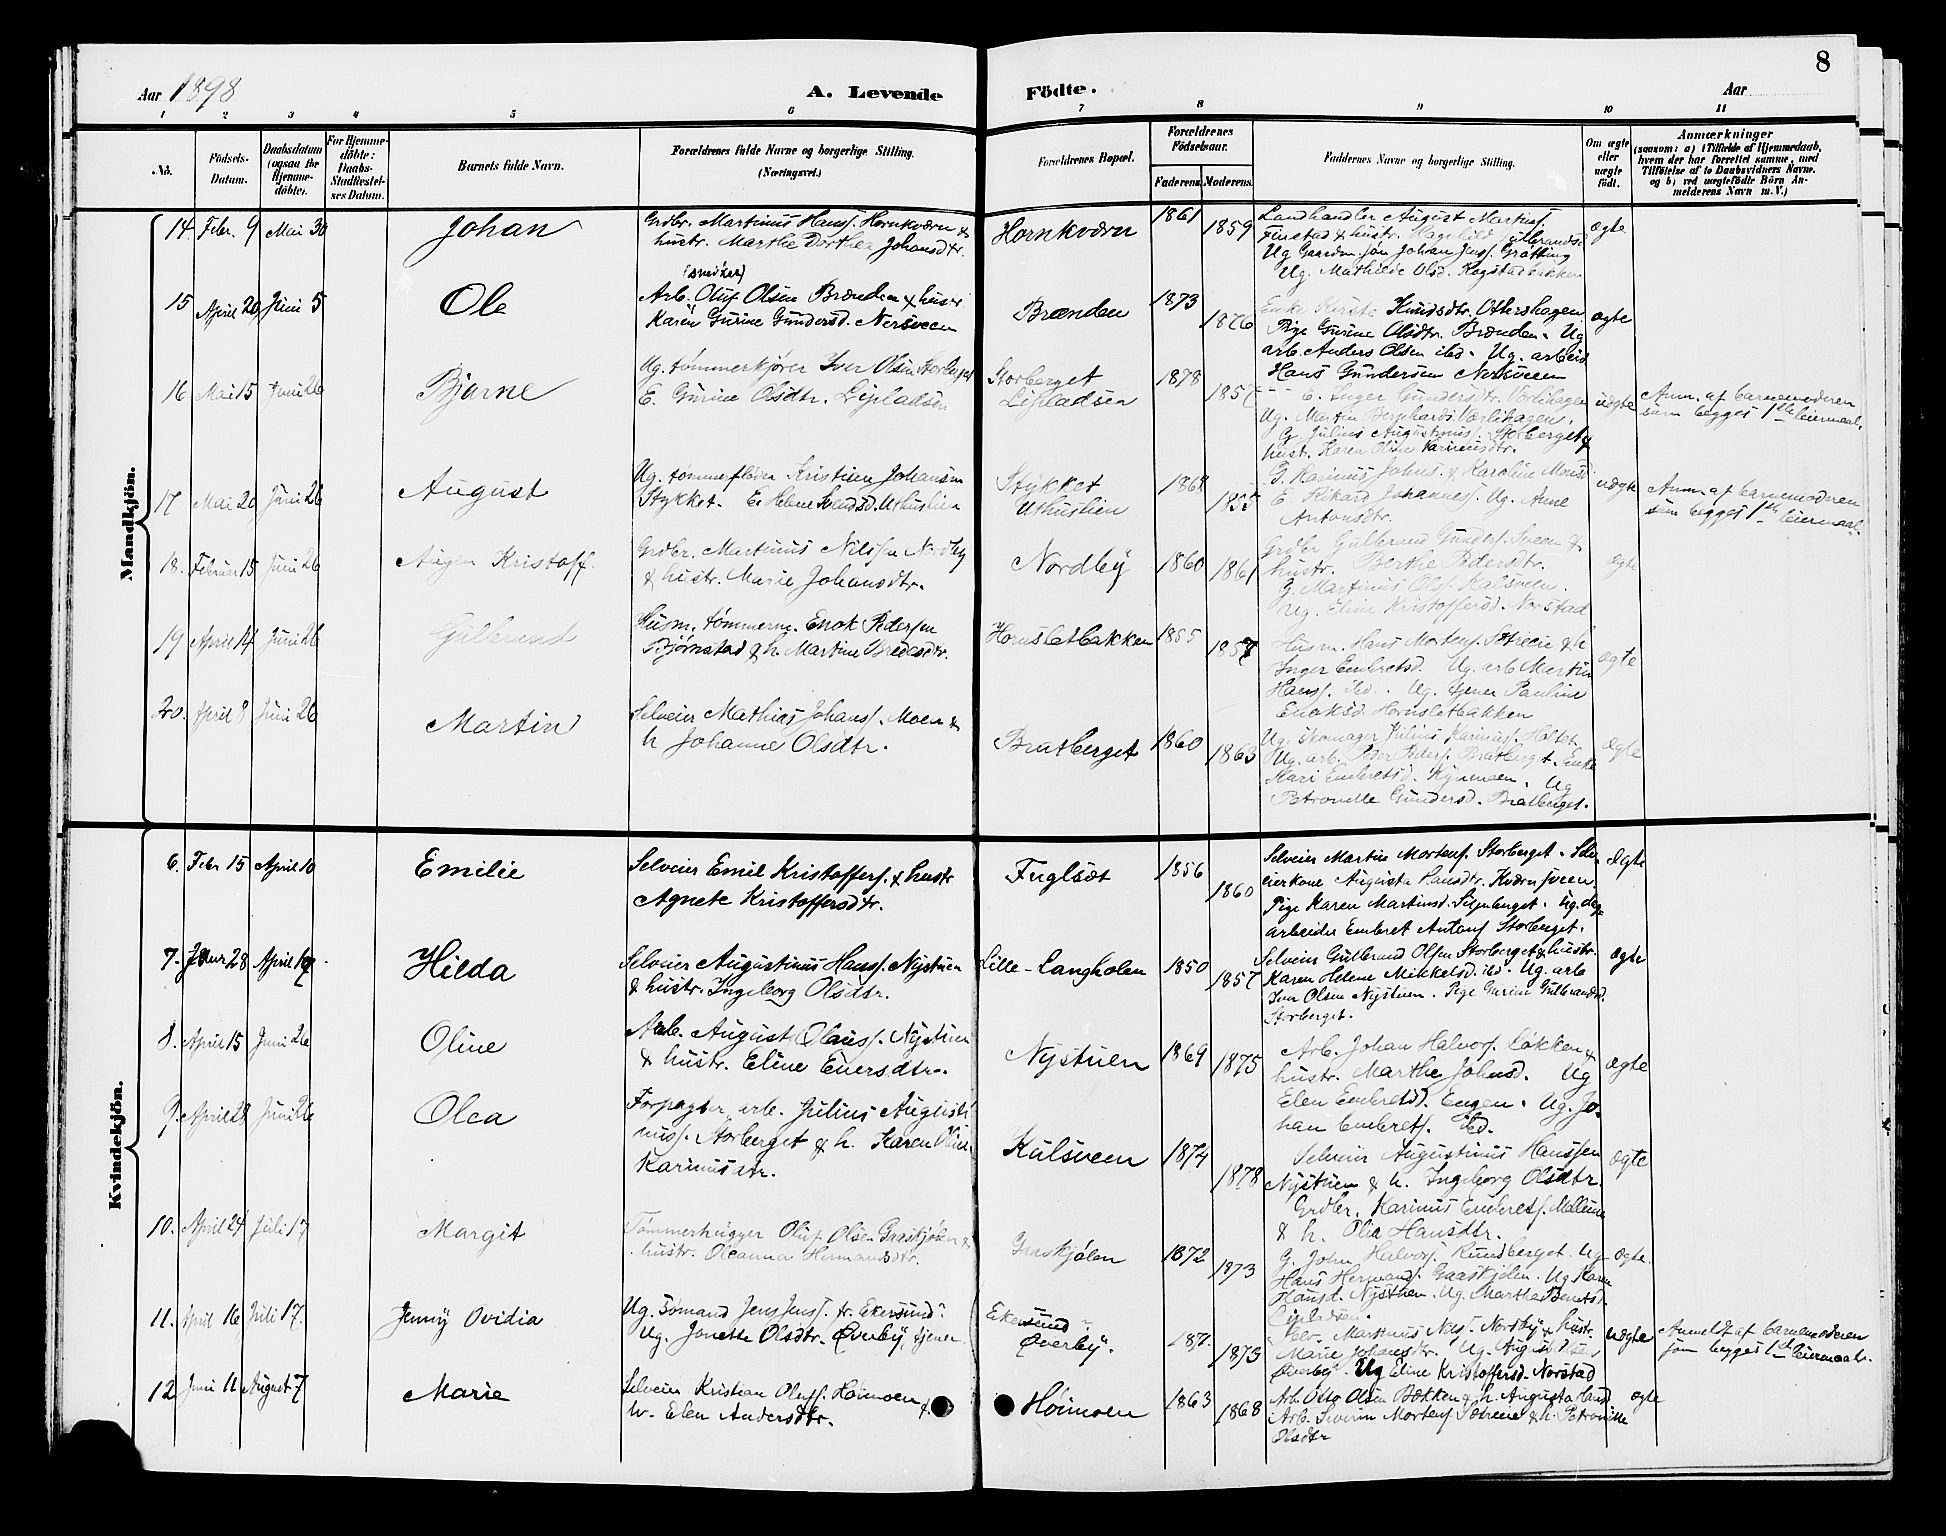 8
Aar 1898
A. Levende Födte.
Aar
1 2 3 4 5 6 7 8 9 10 11
No.
Födsels-Datum.
Daabsdatum (ogsaa for Hjemme-döbte).
For Hjemme-döbte: Daabs-Stadfæstel-ses Datum.
Barnets fulde Navn.
Forældrenes fulde Navne og borgerlige Stilling. (Næringsvei.)
Forældrenes Bopæl.
Forældrenes Födselsaar.
Faderens. Moderens.
Faddernes Navne og borgerlige Stilling.
Om ægte eller uægte födt.
Anmærkninger
(saasom: a) i Tilfælde af Hjemmedaab,
hvem der har forrettet samme, med
Tilföielse af to Daabsvidners Navne.
og b) ved uægtefödte Börn An-
melderens Navn m. V.)
Mandkjön.
14. Febr. 9 Mai 30 Johan
Grdbr. Martinus Hanss. Hornkværn &
hustr. Marthe Dorthea Johansdtr.
Hornkværn 1861 1859
Landhandler August Martins.
Finstad & hustr. Gulbrandsd
Ug Gaardm.søn Johan Jenss. Grøtting
Ug. Mathilde Olsd. Rogstadbakken
ægte
15 April 20 Juni 5 Ole
(snedker)
Arb. Oluf Olsen Brænden & hustr
Karen Gurine Gundersd. Nersveen
Brænden 1873 1876
Enke Kirste Knudsdtr. Ottershagen
Pige Gurine Olsdtr. Brænden. Ug
arb. Anders Olsen ibd. Ug. arbeid
Hans Gundersen Nersveen
ægte
16 Mai 15 Juni 26 Bjarne
Ug. tømmerkjører Iver Olsen Storberget
E. Gurine Olsdtr. Lipladsen
Storberget
Lipladsen
1878 1857
E. Inger Gundersdtr. Væslihagen
Ug. Martin Bernhards. Væslihagen.
G. Julius Augustinuss. Storberget &
hust. Karen Oline Karinusdtr.
uægte
Anm. af barnemoderen
som begges 1ste leiermaal.
17 Mai 20 Juni 26 August
Ug. tømmerfløder Kristian Johansen
Stykket. E. Helene Knudsd. Uthuslien
Stykket
Uthuslien
1868 1855
G. Rasmus Johns. & Karoline Monsd
E. Rikard Johanness. Ug. Anne
Antonsdtr.
uægte
Anm. af barnemoderen
som begges 1ste leiermaal.
18. Februar 15 Juni 26 Augen Kristoff.
Grdbr. Martinus Nilssen Nordby
& hustr. Marie Johansdtr.
Nordby 1860 1861
Grdbr Gulbrand Gunders. Sveen &
hustr. Berthe Pedersdtr.
G. Martinus Ols. Kalsveen.
Ug. Eline Kristoffersd. Norstad
ægte
19 April 14 Juni 26 Gulbrand
Husm. tømmerm. Enok Pedersen
Bjørnstad & h. Martine Bredesdtr.
Hornsletbakken 1855 1857
Husm. Hans Mortens. Sætreeie & h
Inger Embretsd. Ug. arb Martin
Hanss. ibd. Ug. tjener Pauline
Enoksd. Hornsletbakken
ægte
20. April 8 Juni 26 Martin
Selveier Mathias Johanss. Moen &
h Johanne Olsdtr.
Bratberget 1860 1863
Ug. skomager Julius Karinuss. Holtet.
Ug. arb. Peder Peders. Bratberget. Enke
Kari Embretsd. Kynmoen. Ug
Petronelle Gundersd. Bratberget.
ægte
Kvindekjön.
6. Febr 15 April 10 Emilie
Selveier Emil Kristoffers. & hustr
Agnete Kristoffersdtr.
Fuglsæt 1856 1860
Selveier Martin Mortens. Storberget. Selv
eierkone Augusta Hansdtr. Kværnsveen
Pige Karen Martinsd. Siljuberget. Ug. dag
arbeider Embret Antons Storberget.
ægte
7. Januar 28 April 10 Hilda
Selveier Augustinus Hanss. Nystuen
& hustr. Ingeborg Olsdtr.
Lille-Langholen 1850 1857
Selveier Gulbrand Olsen Storberget & hustr.
Karen Helene Mikkelsd. ibd. Ug. arb
Iver Olsen Nystuen. Pige Gurine Gulbrandsd.
Storberget.
ægte
8. April 15 Juni 26 Oline
Arb. August Olauss. Nystuen
& hustr. Eline Eversdtr.
Nystuen 1869 1875
Arb. Johan Halvors. Løkken &
hustr. Marthe Johnsd. Ug
Elen Embretsd. Engen. Ug. Jo-
han Embrets. Ibd.
ægte
9. April 28 Juni 26 Olea
Forpagter, arb. Julius Augusti
nuss. Storberget & h. Karen Oline
Karinusdtr.
Kalsveen 1874 1878
Selveier Augustinus Hanssen
Nystuen & h. Ingeborg Olsdtr.
Grdbr. Karinus Embrets. Mellem
& h. Olia Hansdtr.
ægte
10. April 24 Juli 17 Margit
Tømmerhugger Oluf Olsen Gaaskjølen &
hustr. Oleanna Hermansdtr.
Gaaskjølen 1872 1873
G. John Halvors. Rundberget. Ug
Hans Hermans. Gaaskjølen. Ug Karen
Hansd. Nysthen. Ug. Martha Berntsd.
Lipladsen.
ægte.
11. April 16 Juli 17. Jenny Ovidia
Ug. Sømand Jens Jens. fr. Ekersund?
Ug. Jonette Olsdtr. Øverby, tjener
Ekersund?
Øverby.
187. 1873
Selv. Martinus Nils. Nordby & hustr.
Marie Johansdtr. Ug. August Olsen
Øverby. Ug Eline Kristoffersd. Norstad
uægte
Anmeldt af barnemoderen
som begges 1ste leiermaal.
12 Juni 11 August 7 Marie
Selveier Kristian Oluss. Høimoen &
h. Elen Andersdtr.
Høimoen 1863 1868
Arb. Otto Olsen Bækken & h. Augusta Hansd
Arb. Siverin Mortens. Sætreeie & h. Petronille
Olsdtr
ægte